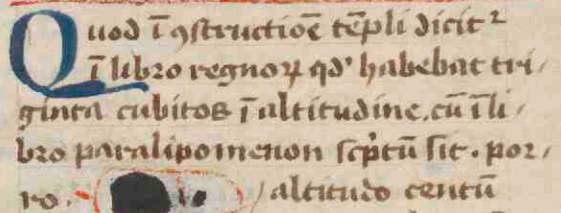 Quod ī ꝯstructiōe tēpli dicitᷣ
ī libro regnoꝝ qd' habebat tri/
ginta cubitos ī altitudine. cū ī li/
bro paralipomenon scͥptū sit. por/
ro. altitudo centū